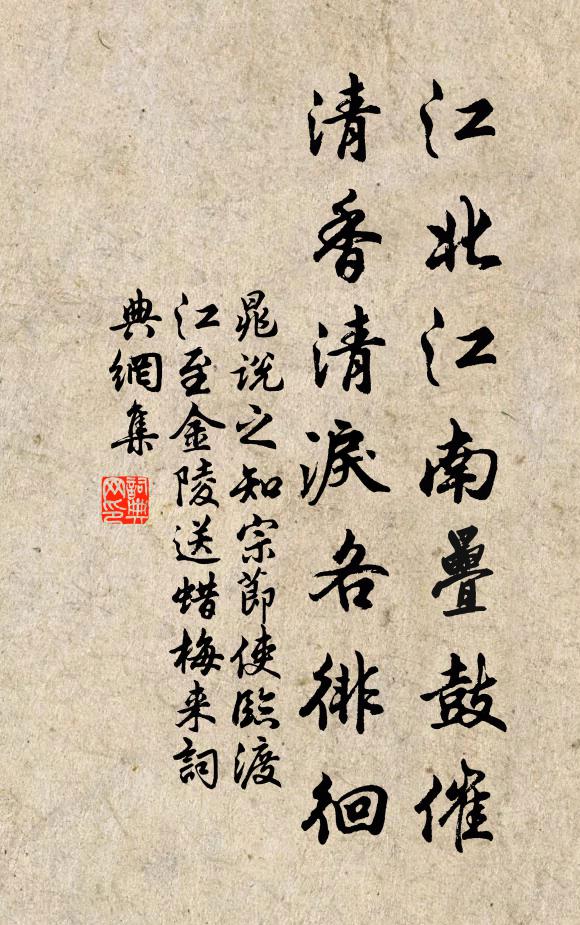 江北江南疊鼓催
清香清淚各徘徊
晁說之知宗節使臨渡
江至金陵送蜡梅来詞
典網集
詞典
网印